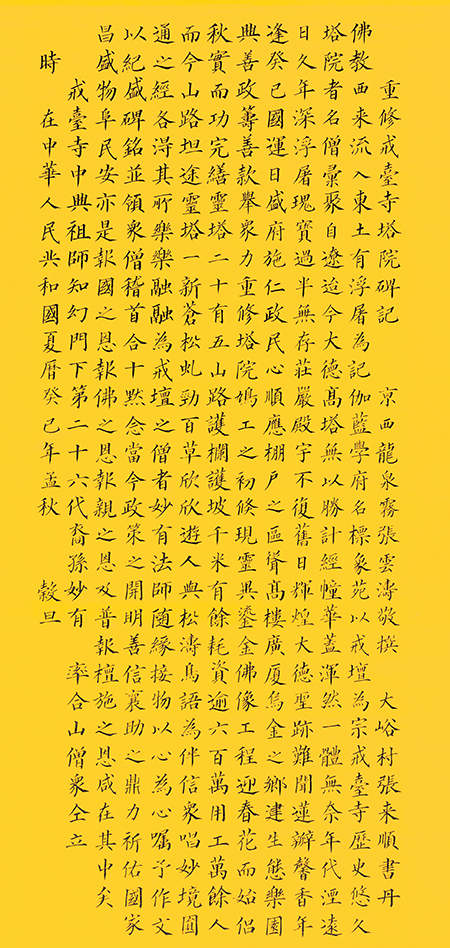 重修戒臺寺塔院碑記 京西龍泉霧張雲濤敬撰 大峪村張來順書丹
佛教西來流入東土有浮屠為記伽藍學府名標象苑以戒壇為宗戒臺寺歷史悠久
塔院者名僧彙聚自遼迨今大德高塔無以勝計經幢華蓋渾然一體無奈年代湮遠
日久年深浮屠瑰寶過半無存莊嚴殿宇不復舊日輝煌大德聖跡難聞蓮瓣馨香年
逢癸巳國運日盛府施仁政民心順應棚戶之區聳高樓廣厦烏金之鄉建生態樂園
興善政籌善款舉眾力重修塔院鳩工之初倏現靈異鎏金佛像工程迎春花而始侶
秋實而功完繕靈塔二十有五山路護欄護坡千米有餘耗資逾六百萬用工萬餘人
而今山路坦途靈塔一新蒼松虬勁百草欣欣遊人與松濤鳥語為伴信眾唱妙境圓
通之經各得其所樂樂融融為戒壇之僧者妙有法師隨緣接物以心為心囑予作文
以紀盛碑銘並領眾僧稽首合十默念當今政策之開明善信襄助之鼎力祈佑國家
昌盛物阜民安亦是報國之恩報佛之恩報親之恩及普報檀施之恩咸在其中矣
戒臺寺中興祖師知幻門下第二十六代裔孫妙有 率合山僧眾仝立
時 在中華人民共和國夏曆癸巳年孟秋 穀旦